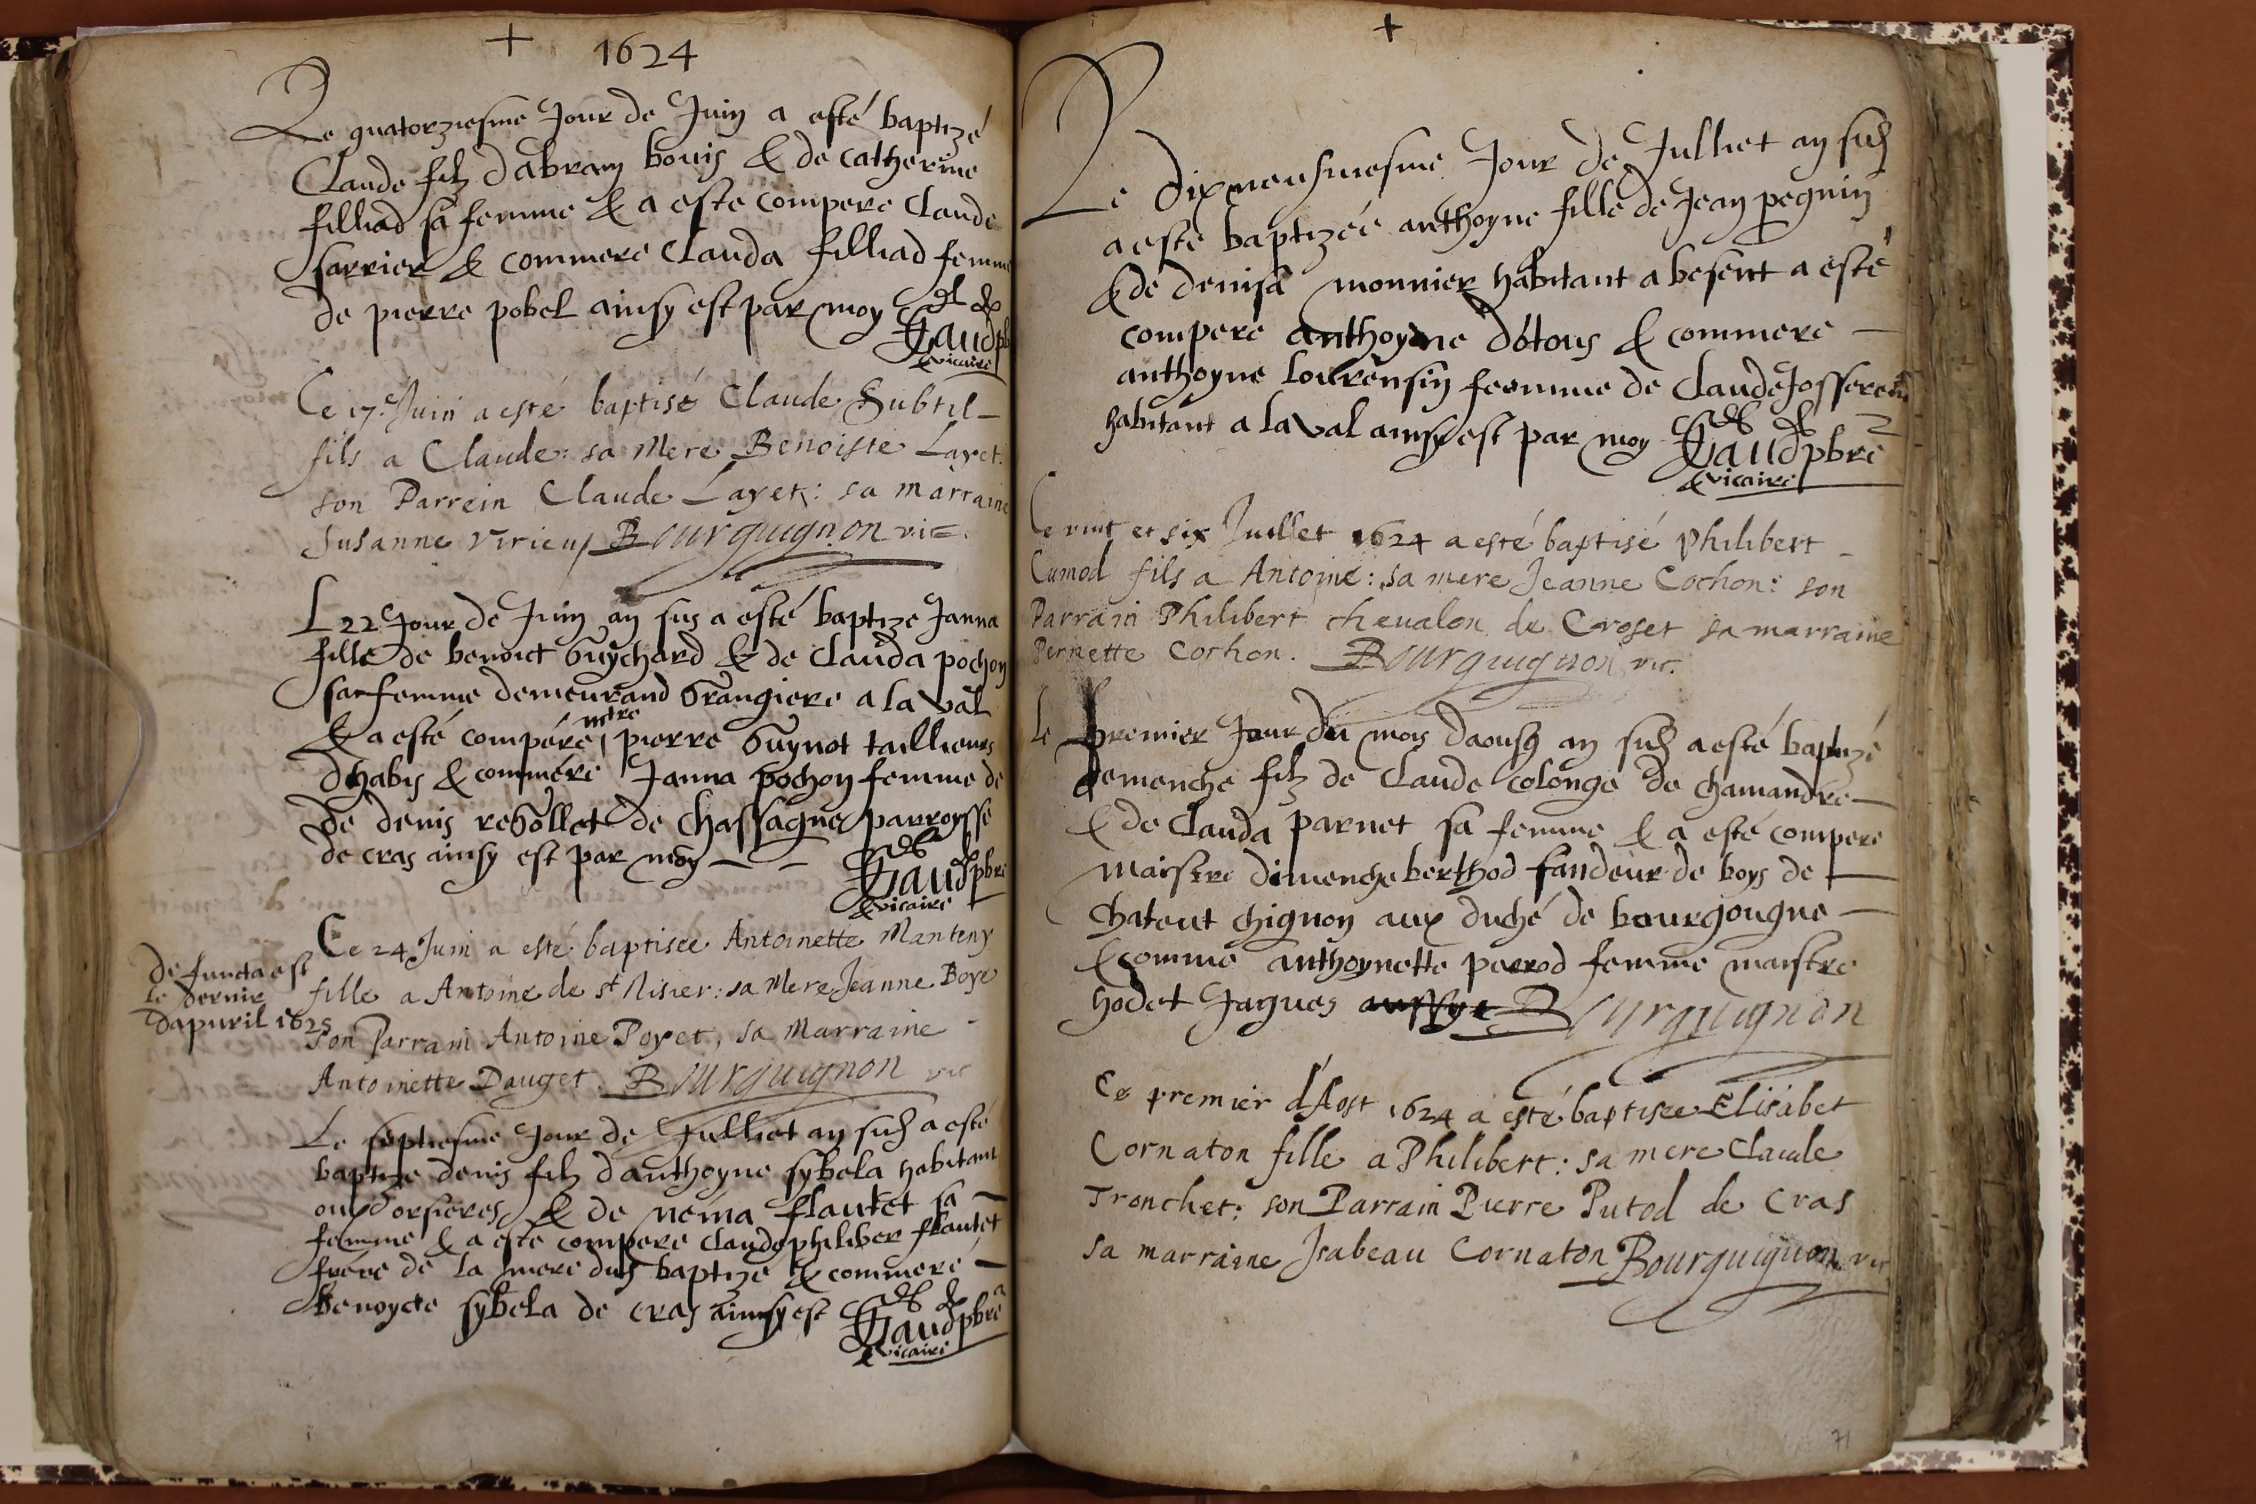 + 1624
Le quatorziesme Jour de Juin a esté baptizé
Claude filz dabram bouis & de catherine
filliad sa femme & a este compere Claude
sarrier & commere Clauda filliad femme
de pierre pobel ainsy est par moy
Gaud pb
& vicaire
Ce 17.e Juin a esté baptisé Claude Subtil
fils a Claude: sa Mere Benoiste Layet:
son Parrein Claude Layet: sa marraine
Susanne Virieux Bourguignon vic.
L 22 Jour de Juin an sus a esté baptize Janna
fille de benoict Guychard & de Clauda pochon
sa femme demeurand Grangiere a la val
& a esté compere mtre pierre Guynot taillieurs
dhabis & commere Janna pochon femme de
de denis reGollet de Chassagne parroysse
de cras ainsy est par moy
Gaud pbre
& vicaire
Ce 24 Juin a esté baptisée Antoinette Manteny
fille a Antoine de st Nisier: sa Mere Jeanne Boye
son Parrain Antoine Poyet, sa Marraine
Antoinette Dauget. Bourguignon vic
de functa est
le dernie
dapuril 1625
Le septiesme Jour de Julliet an susd a esté
baptize denis filz danthoyne sybela habitant
ou dorsieres & de nema flautet sa
femme & a esté compere Claude philiber flautet
frere de la mere dud baptize & commere
benoyete sybela de cras ainsy est
Gaud pbre
& vicaire
+
Le dixneufuiesme Jour de Julliet an susd
a esté baptizée anthoyne fille de Jean peguin
& de denisa monnier habitant a besent a esté
compere anthoyne dótous & commere
anthoyne lourensin femme de Claude Josserend
habitant a la val ainsy est par moy
Gaud pbre
& vicaire
Ce vint et six Juillet 1624 a esté baptisé Philibert
Cumod fils a Antoine: sa mere Jeanne Cochon: son
Parrain Philibert chevalon de Croset sa marraine
Pernette Cochon. Bourguignon vic.
Le premier Jour du mois daoust an susd a esté baptizé
demenche filz de Claude Colonge de chamandre
& de Clauda parnet sa femme & a esté compere
maistre dimenche berthod fandeur de boys de
chateut chignon aux duché de bourgougne
& comme anthoynette perrod femme maistre
hodet Jaques Bourguignon
Ce premier d'Aost 1624 a esté baptisee Elisabet
Cornaton fille a Philibert: sa mere Claude
Tronchet: son Parrain Pierre Putod de Cras
sa marraine Isabeau Cornaton Bourguignon vic
71